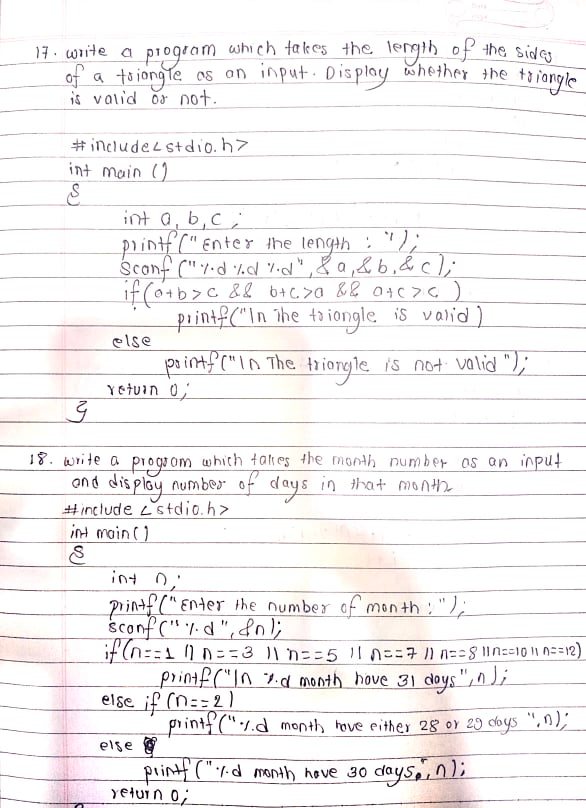 17. write a program which takes the length of the sides
of a triangle as an input. Display whether the triangle
is valid or not.
#include<stdio.h>
int main ()
{
int a, b, c ;
printf("Enter the length : ");
Scanf ("%d %d %d", &a, &b, & c);
if(a+b>c && b+c>a && a+c>c )
printf("\n The triangle is valid )
else
printf("\n The triangle is not valid ");
return 0;
}
18. write a program which takes the month number as an input
and display number of days in that month
#include <stdio.h>
int main()
{
int n;
printf("Enter the number of month :");
scanf("%d", &n);
if(n==1 || n==3 || n==5 || n==7 || n==8 || n==10 || n==12)
printf("\n %d month have 31 days",n);
else if (n==2)
printf("%d month have either 28 or 29 days ",n);
else
printf("%d month have 30 days.",n);
return 0;